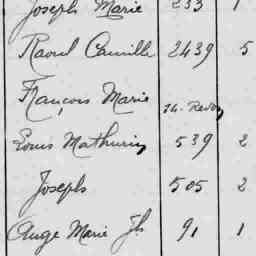 Joseph Marie 233 1
Raoul Camille 2439 5
François Marie
Louis Mathurin 539 2
Joseph 505 2
Ange Marie Jh 91 1